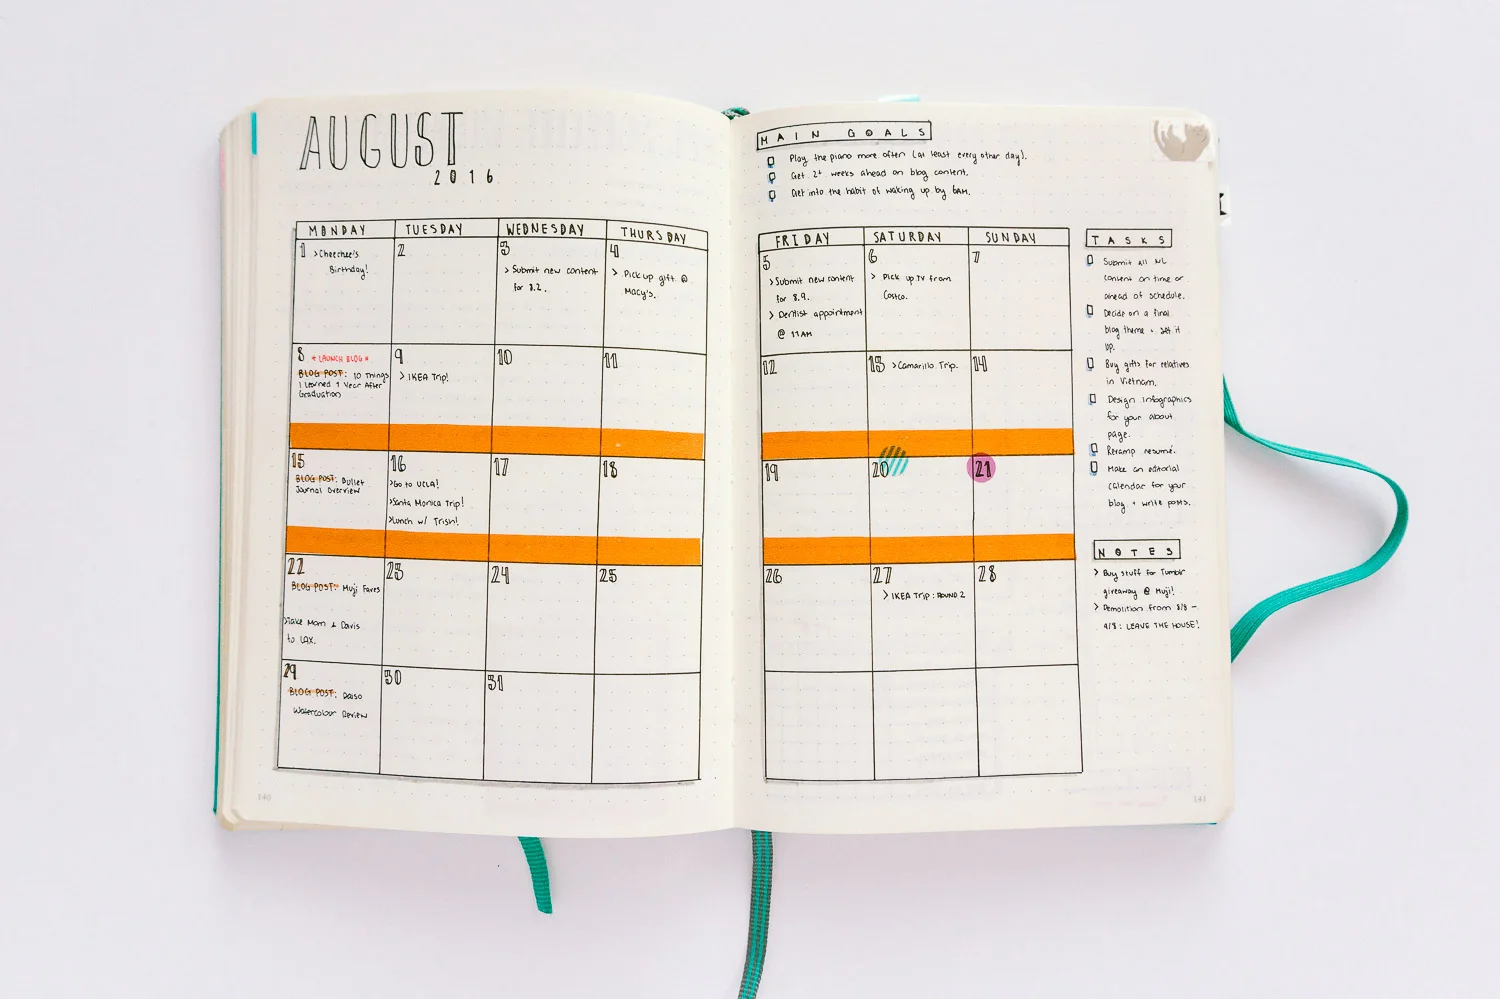 AUGUST
2016
MONDAY TUESDAY WEDNESDAY THURSDAY
1 >Cheechee's
Birthday!
2
3
> Submit new content
for 8.2.
4
> Pick up gift @
Macy's.
8 * LAUNCH BLOG *
BLOG POST: 10 Things
I Learned 1 Year After
Graduation
9
> IKEA Trip!
10
11
15
BLOG POST: Bullet
Journal Overview
16
>Go to UCLA!
>Santa Monica Trip!
>Lunch w/ Trish!
17
18
22
BLOG POST: Muji Faves
>Take Mom & Davis
to LAX.
23
24
25
29
BLOG POST: Daiso
Watercolour Review
30
31
146
MAIN GOALS
Play the piano more often (at least every other day).
Get 2+ weeks ahead on blog content.
Get into the habit of waking up by 8AM.
FRIDAY SATURDAY SUNDAY
5
> Submit new content
for 8.9.
> Dentist appointment
@ 11AM
6
> Pick up TV from
Costco.
7
12
13 > Camarillo Trip.
14
19
20
21
26
27
> IKEA TRIP: ROUND 2
28
TASKS
Submit all NL
content on time or
ahead of schedule.
Decide on a final
blog theme + set it
up.
Buy gifts for relatives
in Vietnam.
Design infographics
for your about
page.
Revamp resumé.
Make an editorial
calendar for your
blog + write posts.
NOTES
> Buy stuff for Tumblr
giveaway @ Muji!
> Demolition from 8/8 –
9/8: LEAVE THE HOUSE!